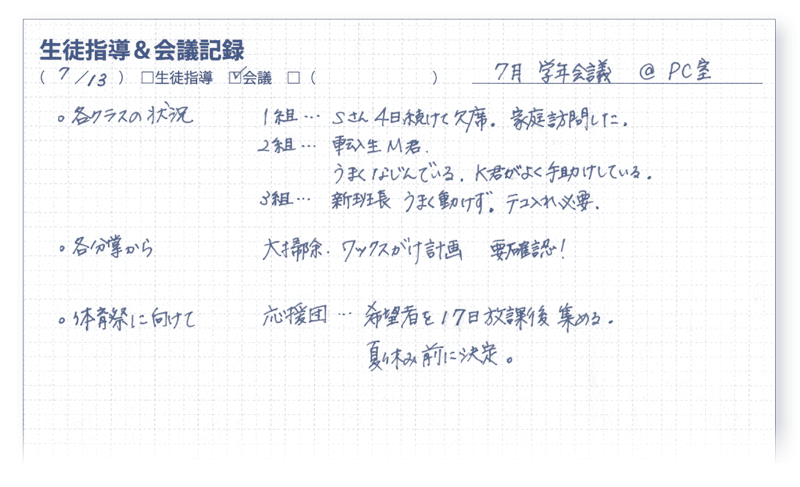 生徒指導＆会議記録
( 7/13 ) □生徒指導 ☑会議 □ ( ) 7月 学年会議 @ PC室
。各クラスの状況 1組… Sさん 4日続けて欠席。家庭訪問した。
2組… 転入生M君.
うまくなじんでいる. K君がよく手助けしている.
3組… 新班長 うまく動けず。テコ入れ必要.
。各分掌から 大掃除. ワックスがけ計画 要確認!
。体育祭に向けて 応援団 … 希望者を17日放課後 集める.
夏休み前に決定。